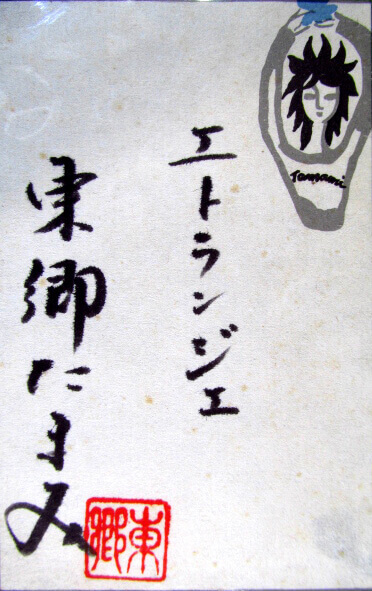 エトランジェ
東郷たまみ
東郷
Tamami